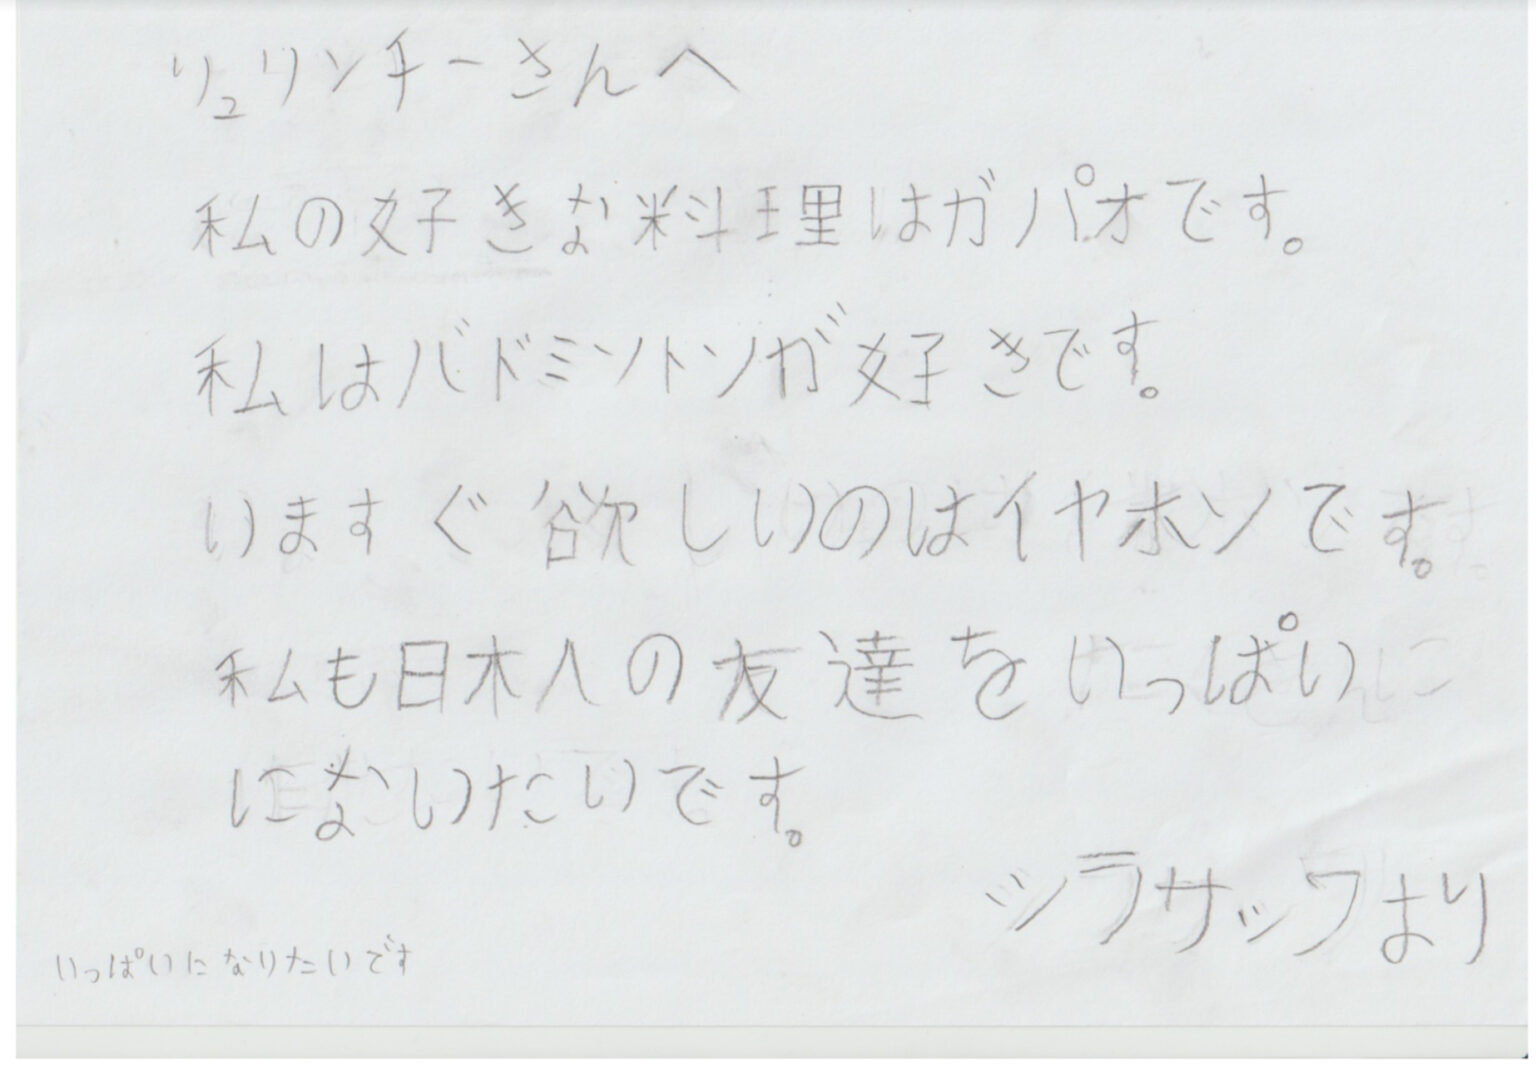 リュリンチーさんへ
私の好きな料理はガパオです。
私はバドミントンが好きです。
いますぐ欲しいのはイヤホンです。
私も日本人の友達をいっぱい
になりたいです。
シラサッワより
いっぱいになりたいです